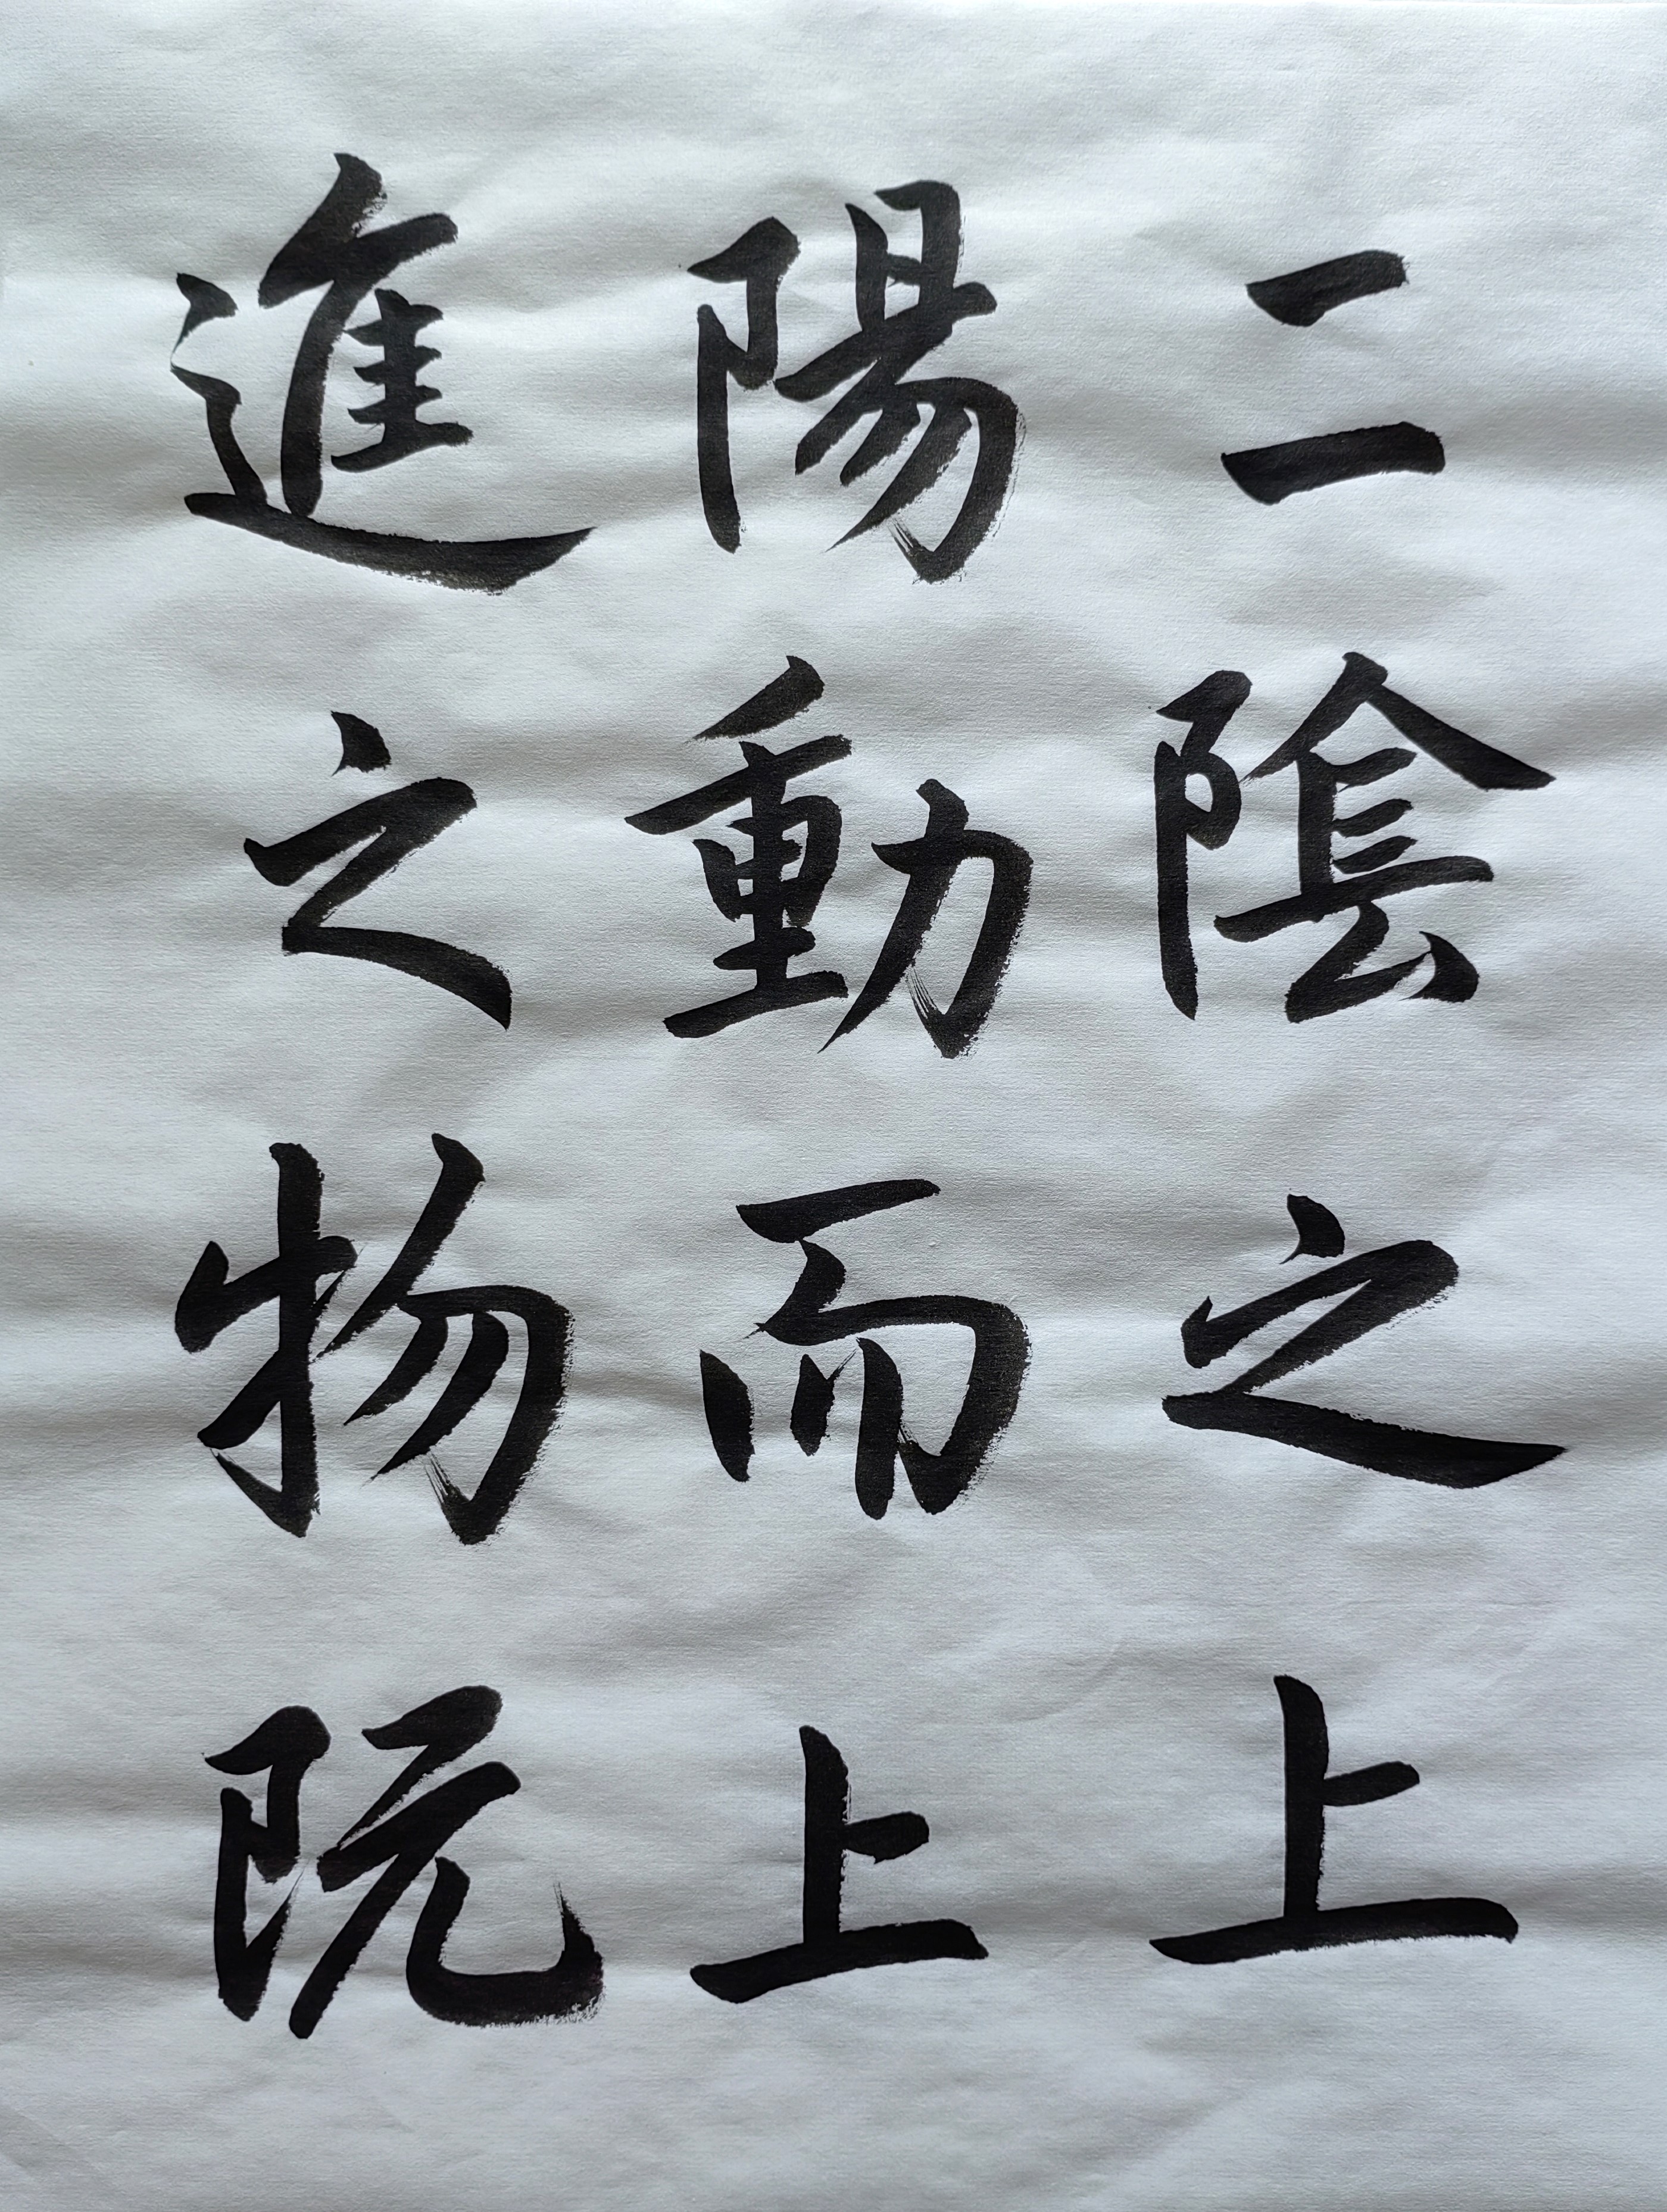 二陰之上
陽動而上
進之物阮